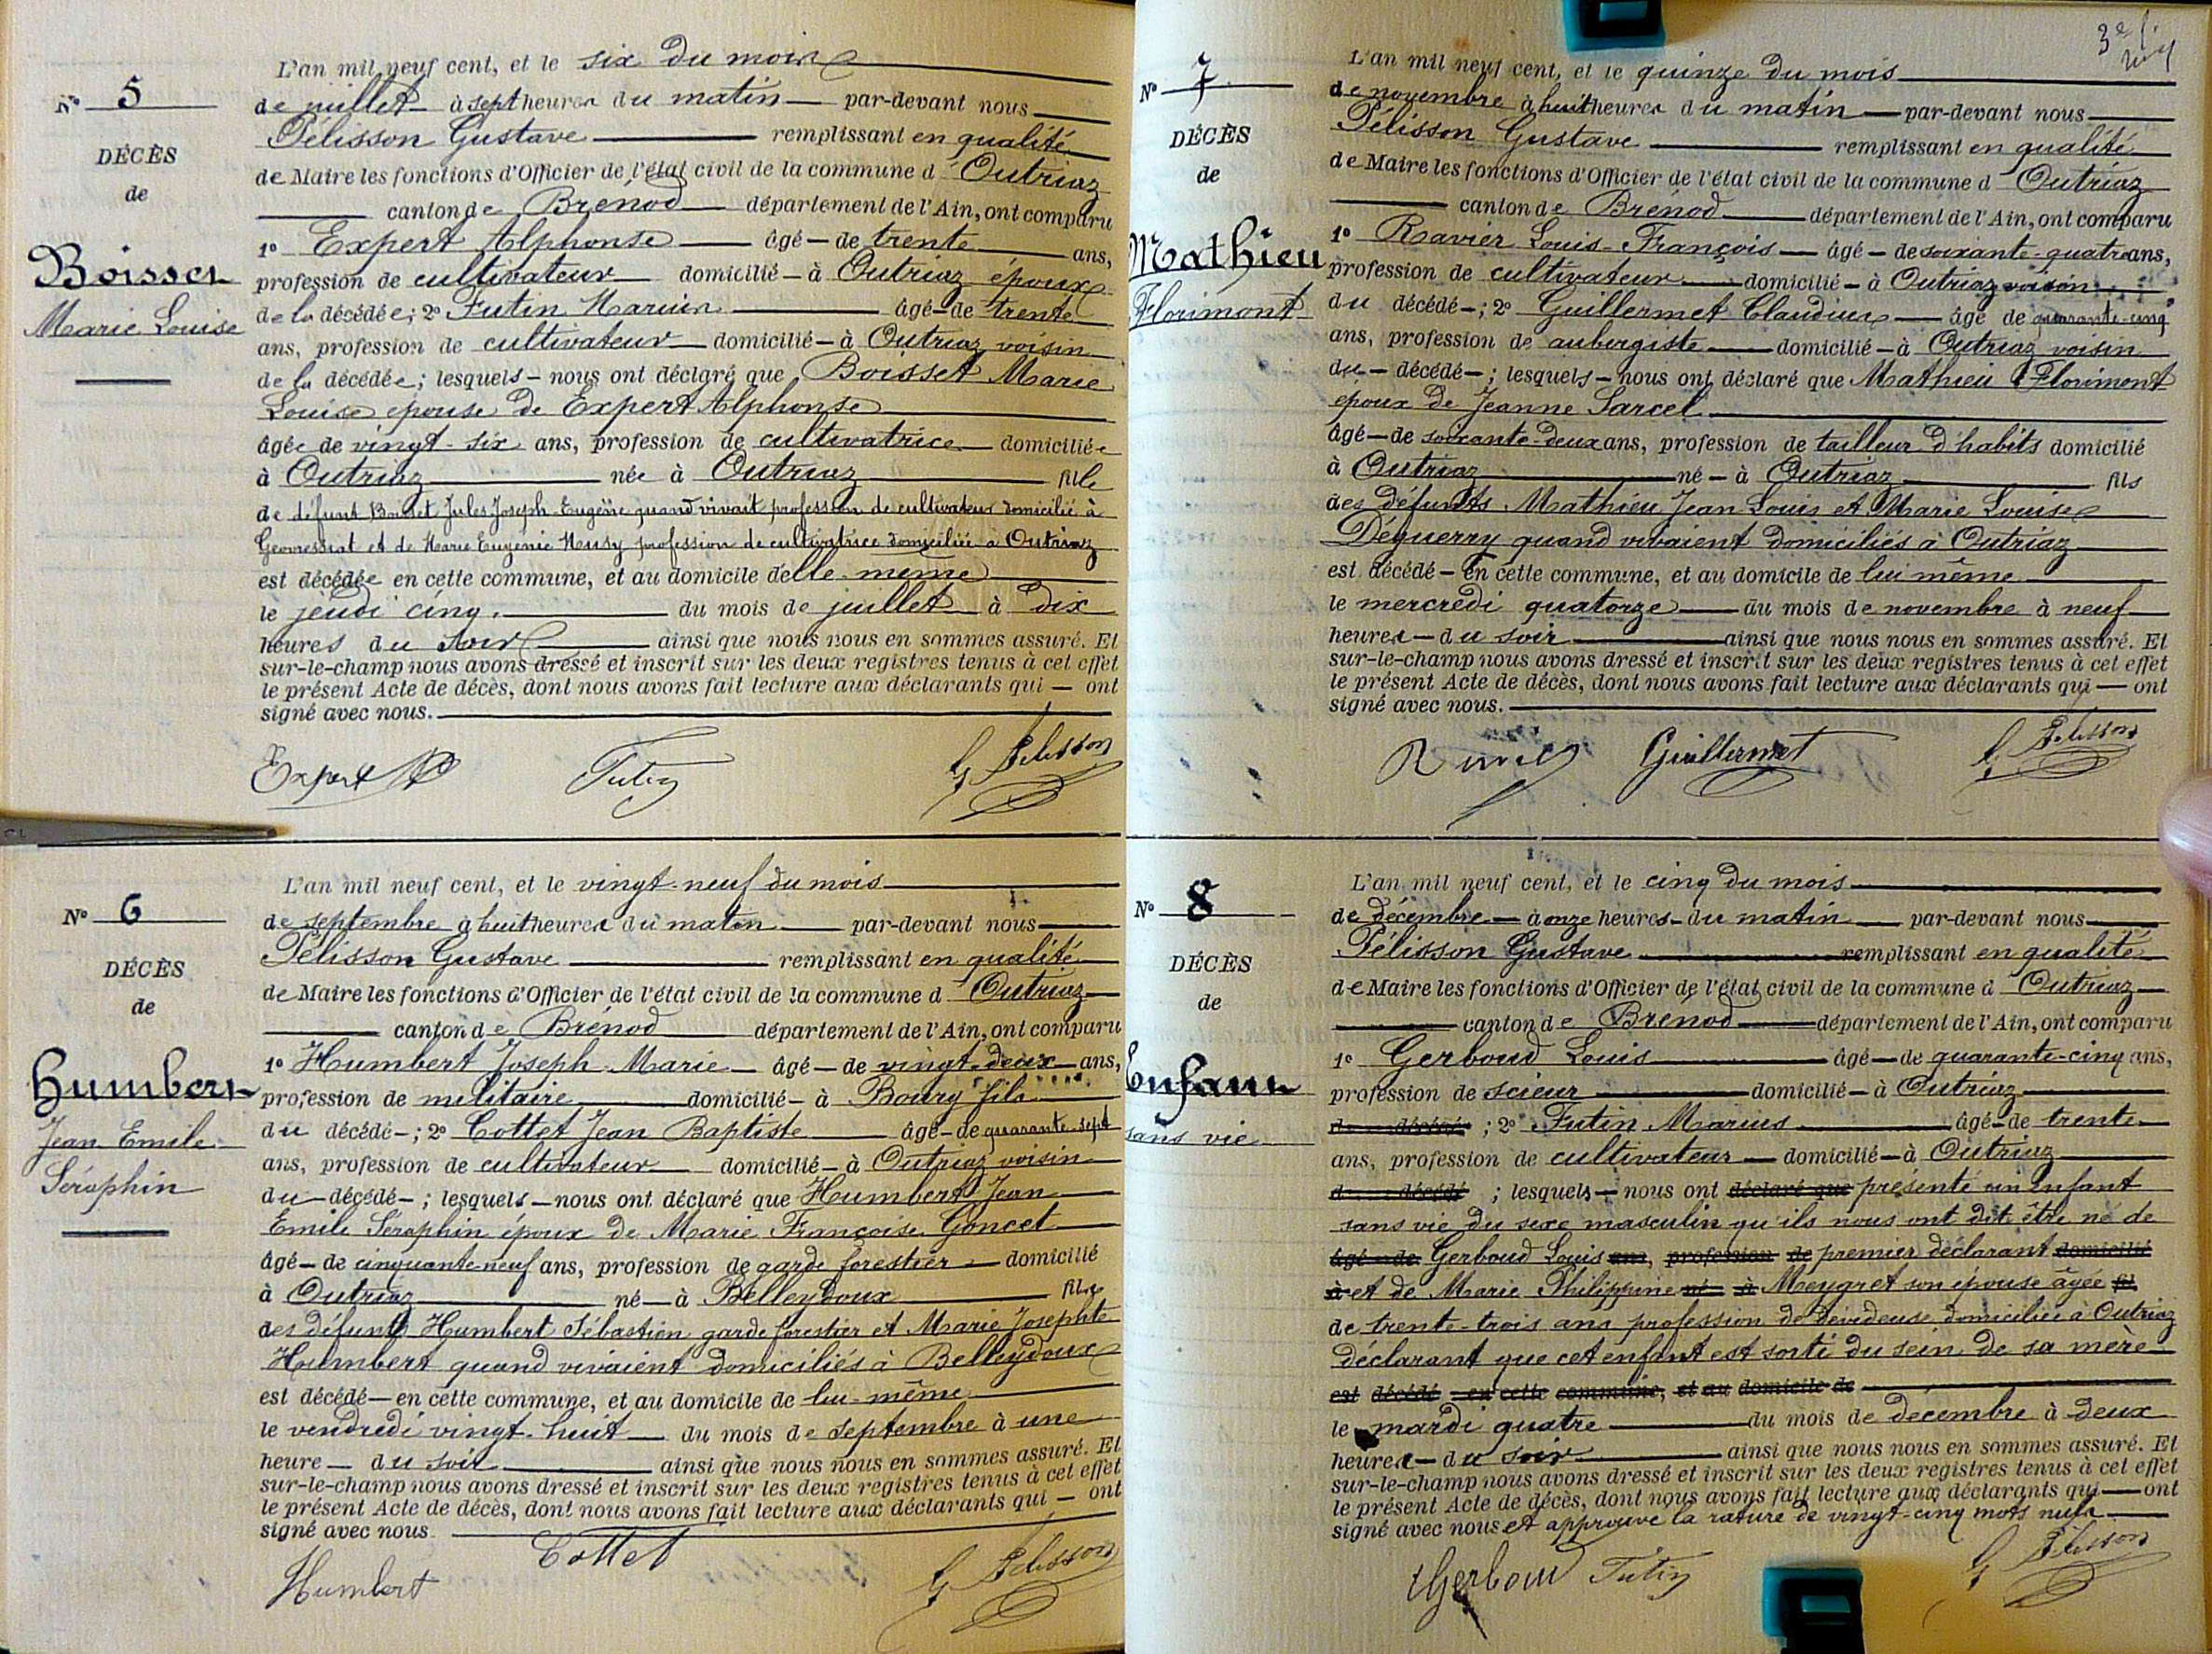 N° 5
DÉCÈS
de
Boisset
Marie Louise
L'an mil neuf cent, et le six du mois
de juillet à sept heures du matin par-devant nous
Pélisson Gustave remplissant en qualité
de Maire les fonctions d'Officier de l'état civil de la commune d'Outriaz
canton de Brénod département de l'Ain, ont comparu
1° Expert Alphonse âgé de trente ans,
profession de cultivateur domicilié à Outriaz époux
de la décédée; 2° Futin Marius âgé de trente
ans, profession de cultivateur domicilié à Outriaz voisin
de la décédée; lesquels nous ont déclaré que Boisset Marie
Louise épouse de Expert Alphonse
âgée de vingt-six ans, profession de cultivatrice domiciliée
à Outriaz née à Outriaz fille
de défunt Boisset Jules Joseph Eugène quand vivait profession de cultivateur domicilié à
Geovressiat et de Marie Eugénie profession de cultivatrice domiciliée à Outriaz
est décédée en cette commune, et au domicile d'elle-même
le jeudi cinq du mois de juillet à dix
heures du soir ainsi que nous nous en sommes assuré. Et
sur-le-champ nous avons dressé et inscrit sur les deux registres tenus à cet effet
le présent Acte de décès, dont nous avons fait lecture aux déclarants qui ont
signé avec nous.
Expert Futin G Pélisson
N° 6
DÉCÈS
de
Humbert
Jean Emile
Séraphin
L'an mil neuf cent, et le vingt-neuf du mois
de septembre à huit heures du matin par-devant nous
Pélisson Gustave remplissant en qualité
de Maire les fonctions d'Officier de l'état civil de la commune d'Outriaz
canton de Brénod département de l'Ain, ont comparu
1° Humbert Joseph Marie âgé de vingt-deux ans,
profession de militaire domicilié à Bourg fils
du décédé; 2° Cottet Jean Baptiste âgé de quarante-sept
ans, profession de cultivateur domicilié à Outriaz voisin
du décédé; lesquels nous ont déclaré que Humbert Jean
Emile Séraphin époux de Marie Françoise Goncet
âgé de cinquante-neuf ans, profession de garde forestier domicilié
à Outriaz né à Belleydoux fils
des défunts Humbert Sébastien garde forestier et Marie Josephte
Humbert quand vivaient domiciliés à Belleydoux
est décédé en cette commune, et au domicile de lui-même
le vendredi vingt-huit du mois de septembre à une
heure du soir ainsi que nous nous en sommes assuré. Et
sur-le-champ nous avons dressé et inscrit sur les deux registres tenus à cet effet
le présent Acte de décès, dont nous avons fait lecture aux déclarants qui ont
signé avec nous.
Humbert Cottet G Pélisson
3e f.
N° 7
DÉCÈS
de
Mathieu
Florimont
L'an mil neuf cent, et le quinze du mois
de novembre à huit heures du matin par-devant nous
Pélisson Gustave remplissant en qualité
de Maire les fonctions d'Officier de l'état civil de la commune d Outriaz
canton de Brénod département de l'Ain, ont comparu
1° Ravier Louis-François âgé de soixante-quatre ans,
profession de cultivateur domicilié à Outriaz voisin
du décédé; 2° Guillermet Claudius âgé de quarante-cinq
ans, profession de aubergiste domicilié à Outriaz voisin
du décédé; lesquels nous ont déclaré que Mathieu Florimont
époux de Jeanne Sarcel
âgé de soixante-deux ans, profession de tailleur d'habits domicilié
à Outriaz né à Outriaz fils
des défunts Mathieu Jean Louis et Marie Louise
Déguerry quand vivaient domiciliés à Outriaz
est décédé en cette commune, et au domicile de lui même
le mercredi quatorze du mois de novembre à neuf
heures du soir ainsi que nous nous en sommes assuré. Et
sur-le-champ nous avons dressé et inscrit sur les deux registres tenus à cet effet
le présent Acte de décès, dont nous avons fait lecture aux déclarants qui ont
signé avec nous.
Ravier Guillermet G Pélisson
N° 8
DÉCÈS
de
Enfant
sans vie
L'an mil neuf cent, et le cinq du mois
de décembre à onze heures du matin par-devant nous
Pélisson Gustave remplissant en qualité
de Maire les fonctions d'Officier de l'état civil de la commune d Outriaz
canton de Brénod département de l'Ain, ont comparu
1° Gerboud Louis âgé de quarante-cinq ans,
profession de scieur domicilié à Outriaz
d décédé; 2° Futin Marius âgé de trente
ans, profession de cultivateur domicilié à Outriaz
d décédé; lesquels nous ont déclaré que présenté un enfant
sans vie du sexe masculin qu'ils nous ont dit être né de
âgé de Gerboud Louis ans, profession de premier déclarant domicilié
à et de Marie Philippine né à Meygret son épouse âgée fil
de trente-trois ans profession de dévideuse domiciliée à Outriaz
déclarant que cet enfant est sorti du sein de sa mère
est décédé en cette commune, et au domicile de
le mardi quatre du mois de décembre à deux
heures du soir ainsi que nous nous en sommes assuré. Et
sur-le-champ nous avons dressé et inscrit sur les deux registres tenus à cet effet
le présent Acte de décès, dont nous avons fait lecture aux déclarants qui ont
signé avec nous et approuvé la rature de vingt-cinq mots nuls
Gerboud Futin G Pélisson